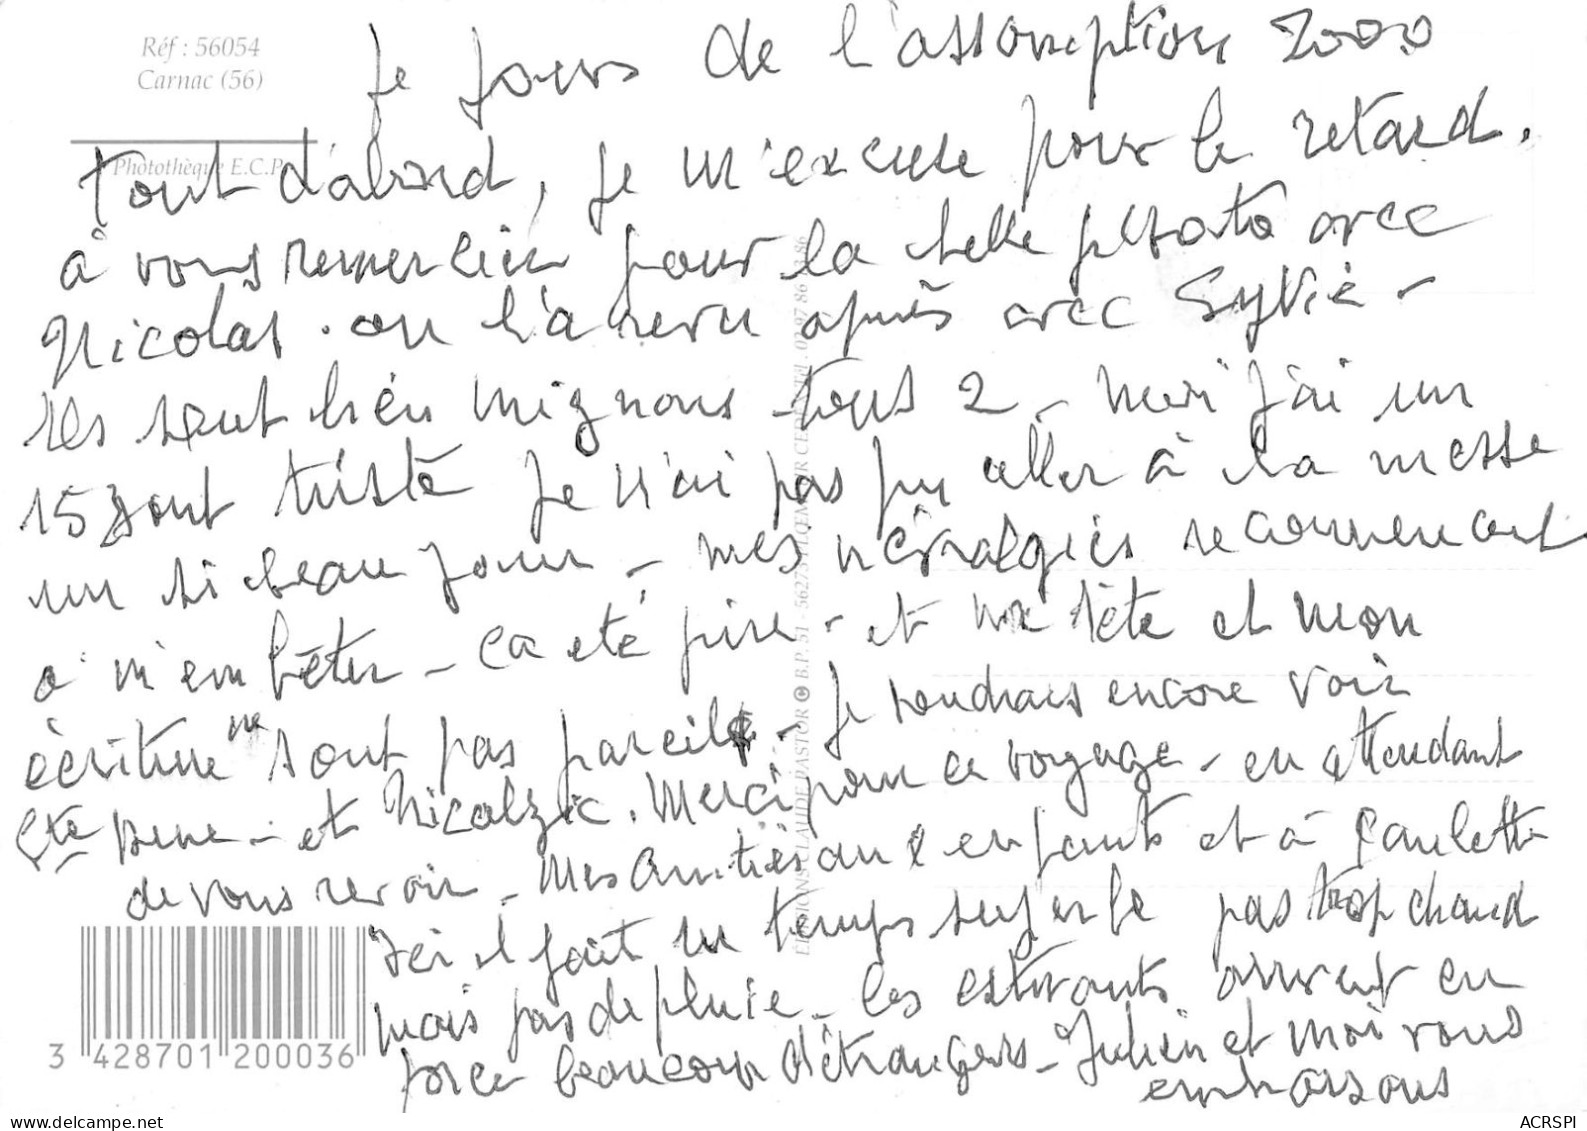 Réf : 56054
Carnac (56)
Photothèque E.C.P.
ÉDITIONS CLAUDE PASTOR © B.P. 51 - 56275 PLŒMEUR CEDEX TÉL. 02 97 86
Je jours de l'assomption 2000
tout d'abord, je m'excuse pour le retard.
à vous remercier pour la belle photo avec
Nicolas. on l'a revu après avec Sylvie -
Ils sont bien mignons tous 2 - moi j'ai un
15 aout triste je n'ai pas pu aller à la messe
un si beau jour - mes névralgies recommencent
a m'embêter - ça eté pire - et ma tête et mon
écriture ne sont pas pareils - je voudrais encore voir
Ste Anne - et Nicolazic. Merci pour ce voyage - en attendant
de vous revoir - Mes Amitiés aux enfants et à Paulette
Ici il fait un temps superbe pas trop chaud
mais pas de pluie - les estivants arrivent en
force beaucoup d'étrangers - Julien et moi vous
embrassons
3 428701 200036
www.delcampe.net
ACRSPI